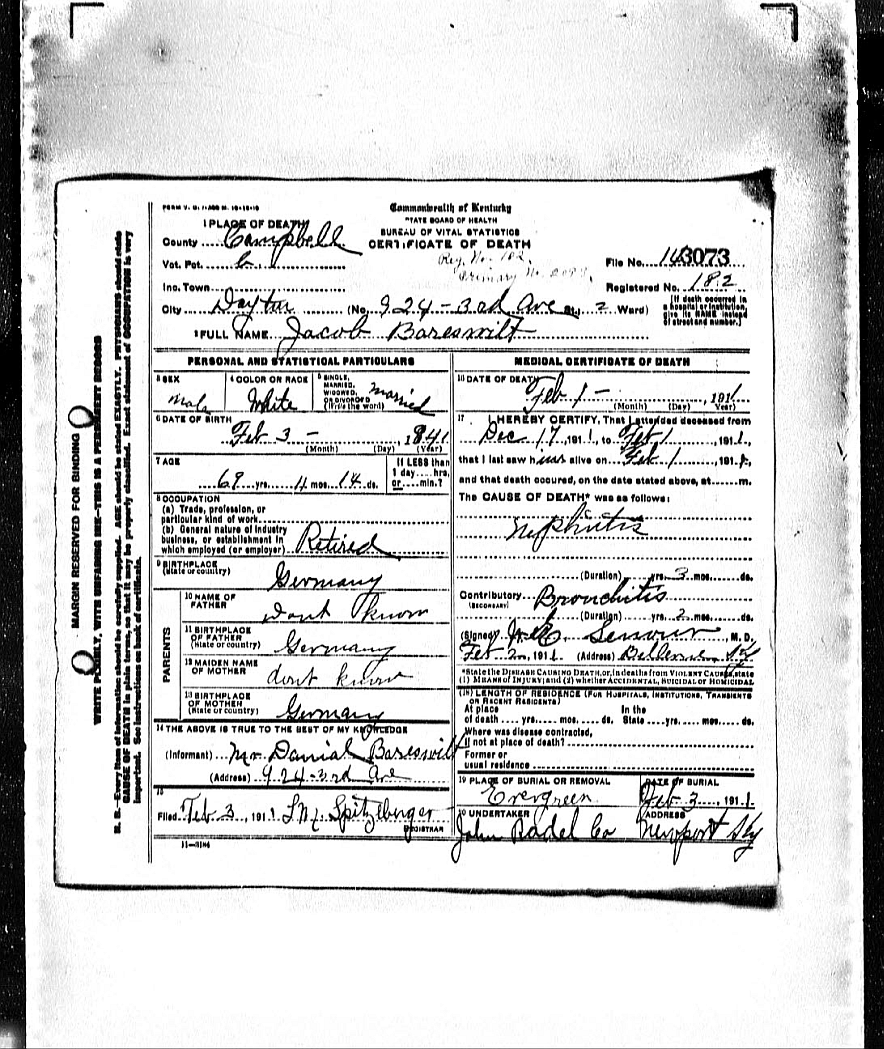 FORM V. S. 1-A
Commonwealth of Kentucky
STATE BOARD OF HEALTH
BUREAU OF VITAL STATISTICS
CERTIFICATE OF DEATH
1 PLACE OF DEATH
County Campbell
Vot. Pct. Reg. No. 182
Primary No.
File No. 3073
Inc. Town Registered No. 182
City Dayton (No. 924 - 3rd Ave St., 2 Ward)
[If death occurred in a hospital or institution, give its NAME instead of street and number.]
2 FULL NAME Jacob Bareswilt
PERSONAL AND STATISTICAL PARTICULARS
3 SEX Male
4 COLOR OR RACE White
5 SINGLE, MARRIED, WIDOWED, OR DIVORCED (Write the word) Married
6 DATE OF BIRTH Feb 3 - , 1841
(Month) (Day) (Year)
7 AGE 69 yrs. 11 mos. 14 ds.
If LESS than 1 day.....hrs. or.....min.?
8 OCCUPATION
(a) Trade, profession, or particular kind of work
(b) General nature of industry business, or establishment in which employed (or employer) Retired
9 BIRTHPLACE (State or country) Germany
PARENTS
10 NAME OF FATHER Dont know
11 BIRTHPLACE OF FATHER (State or country) Germany
12 MAIDEN NAME OF MOTHER dont know
13 BIRTHPLACE OF MOTHER (State or country) Germany
14 THE ABOVE IS TRUE TO THE BEST OF MY KNOWLEDGE
(Informant) Mr Danial Bareswilt
(Address) 924-3rd Ave
15
Filed Feb 3, 1911 Spitzlberger
REGISTRAR
11-3184
MEDICAL CERTIFICATE OF DEATH
16 DATE OF DEATH Feb 1 - , 1911
(Month) (Day) (Year)
17 I HEREBY CERTIFY, That I attended deceased from
Dec 17, 1911, to Feb 1, 1911,
that I last saw him alive on Feb 1, 191
and that death occured, on the date stated above, at m.
The CAUSE OF DEATH* was as follows:
Nephritis
(Duration) yrs. 3 mos. ds.
Contributory (SECONDARY) Bronchitis
(Duration) yrs. 2 mos. ds.
(Signed) Senour, M. D.
Feb 2, 1911 (Address) Bellevue Ky
*State the DISEASE CAUSING DEATH, or, in deaths from VIOLENT CAUSES, state (1) MEANS OF INJURY; and (2) whether ACCIDENTAL, SUICIDAL or HOMICIDAL
18 LENGTH OF RESIDENCE (FOR HOSPITALS, INSTITUTIONS, TRANSIENTS OR RECENT RESIDENTS)
At place of death yrs. mos. ds. In the State yrs. mos. ds.
Where was disease contracted, If not at place of death?
Former or usual residence
19 PLACE OF BURIAL OR REMOVAL Evergreen
DATE OF BURIAL Feb 3, 1911
20 UNDERTAKER John Radel Co
ADDRESS Newport Ky
MARGIN RESERVED FOR BINDING
WRITE PLAINLY, WITH UNFADING INK—THIS IS A PERMANENT RECORD
N. B.—Every item of information should be carefully supplied. AGE should be stated EXACTLY. PHYSICIANS should state
CAUSE OF DEATH in plain terms, so that it may be properly classified. Exact statement of OCCUPATION is very
important. See instructions on back of certificate.